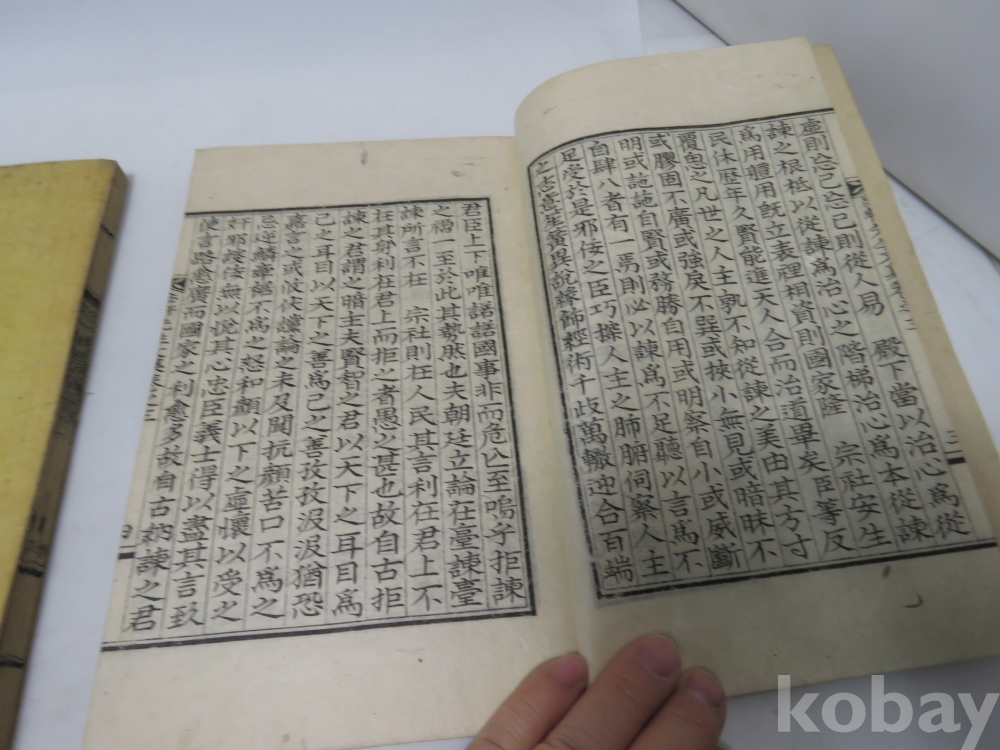 虛則忘己忘己則從人易　殿下當以治心爲從
諫之根柢以從諫爲治心之階梯治心爲本從諫
爲用體用旣立表裡相資則國家隆　宗社安生
民休歷年久賢能進天人合而治道畢矣臣等反
覆思之凡世之人主孰不知從諫之美由其方寸
或膠固不廣或強戾不異或挾小無見或暗昧不
明或訑訑自賢或務勝自用或明察自小或威斷
自肆八者有一焉則必以諫爲不足聽以言爲不
足受於是邪佞之臣巧揣人主之肺腑伺察人主
之志意笙簧異說緣飾經術千歧萬轍迎合百端
三
君臣上下唯唯諾諾國事非而危亡至嗚乎拒諫
之禍一至於此其勢然也夫朝廷立論在臺諫臺
諫所言不在　宗社則在人民其言利在君上不
在其身利在君上而拒之者愚之甚也故自古拒
諫之君謂之暗主夫賢智之君以天下之耳目爲
己之耳目以天下之善爲己之善孜孜汲汲猶恐
嘉言之或攸伏讜論之未及聞抗顔苦口不爲之
忌逆鱗 不爲之怒和顔以下之虛懷以受之
奸邪 佞無以悅其心忠臣義士得以盡其言 
使言路愈廣而國家之利愈多故自古納諫之君
四
kobay